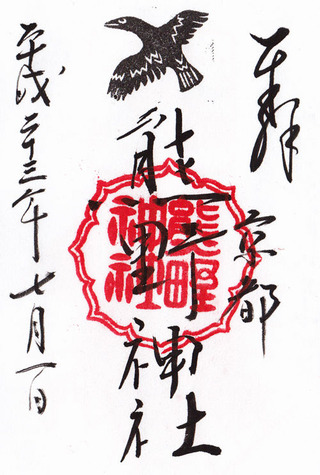 奉拝
京都
熊野神社
熊野神社
平成二十三年七月一日